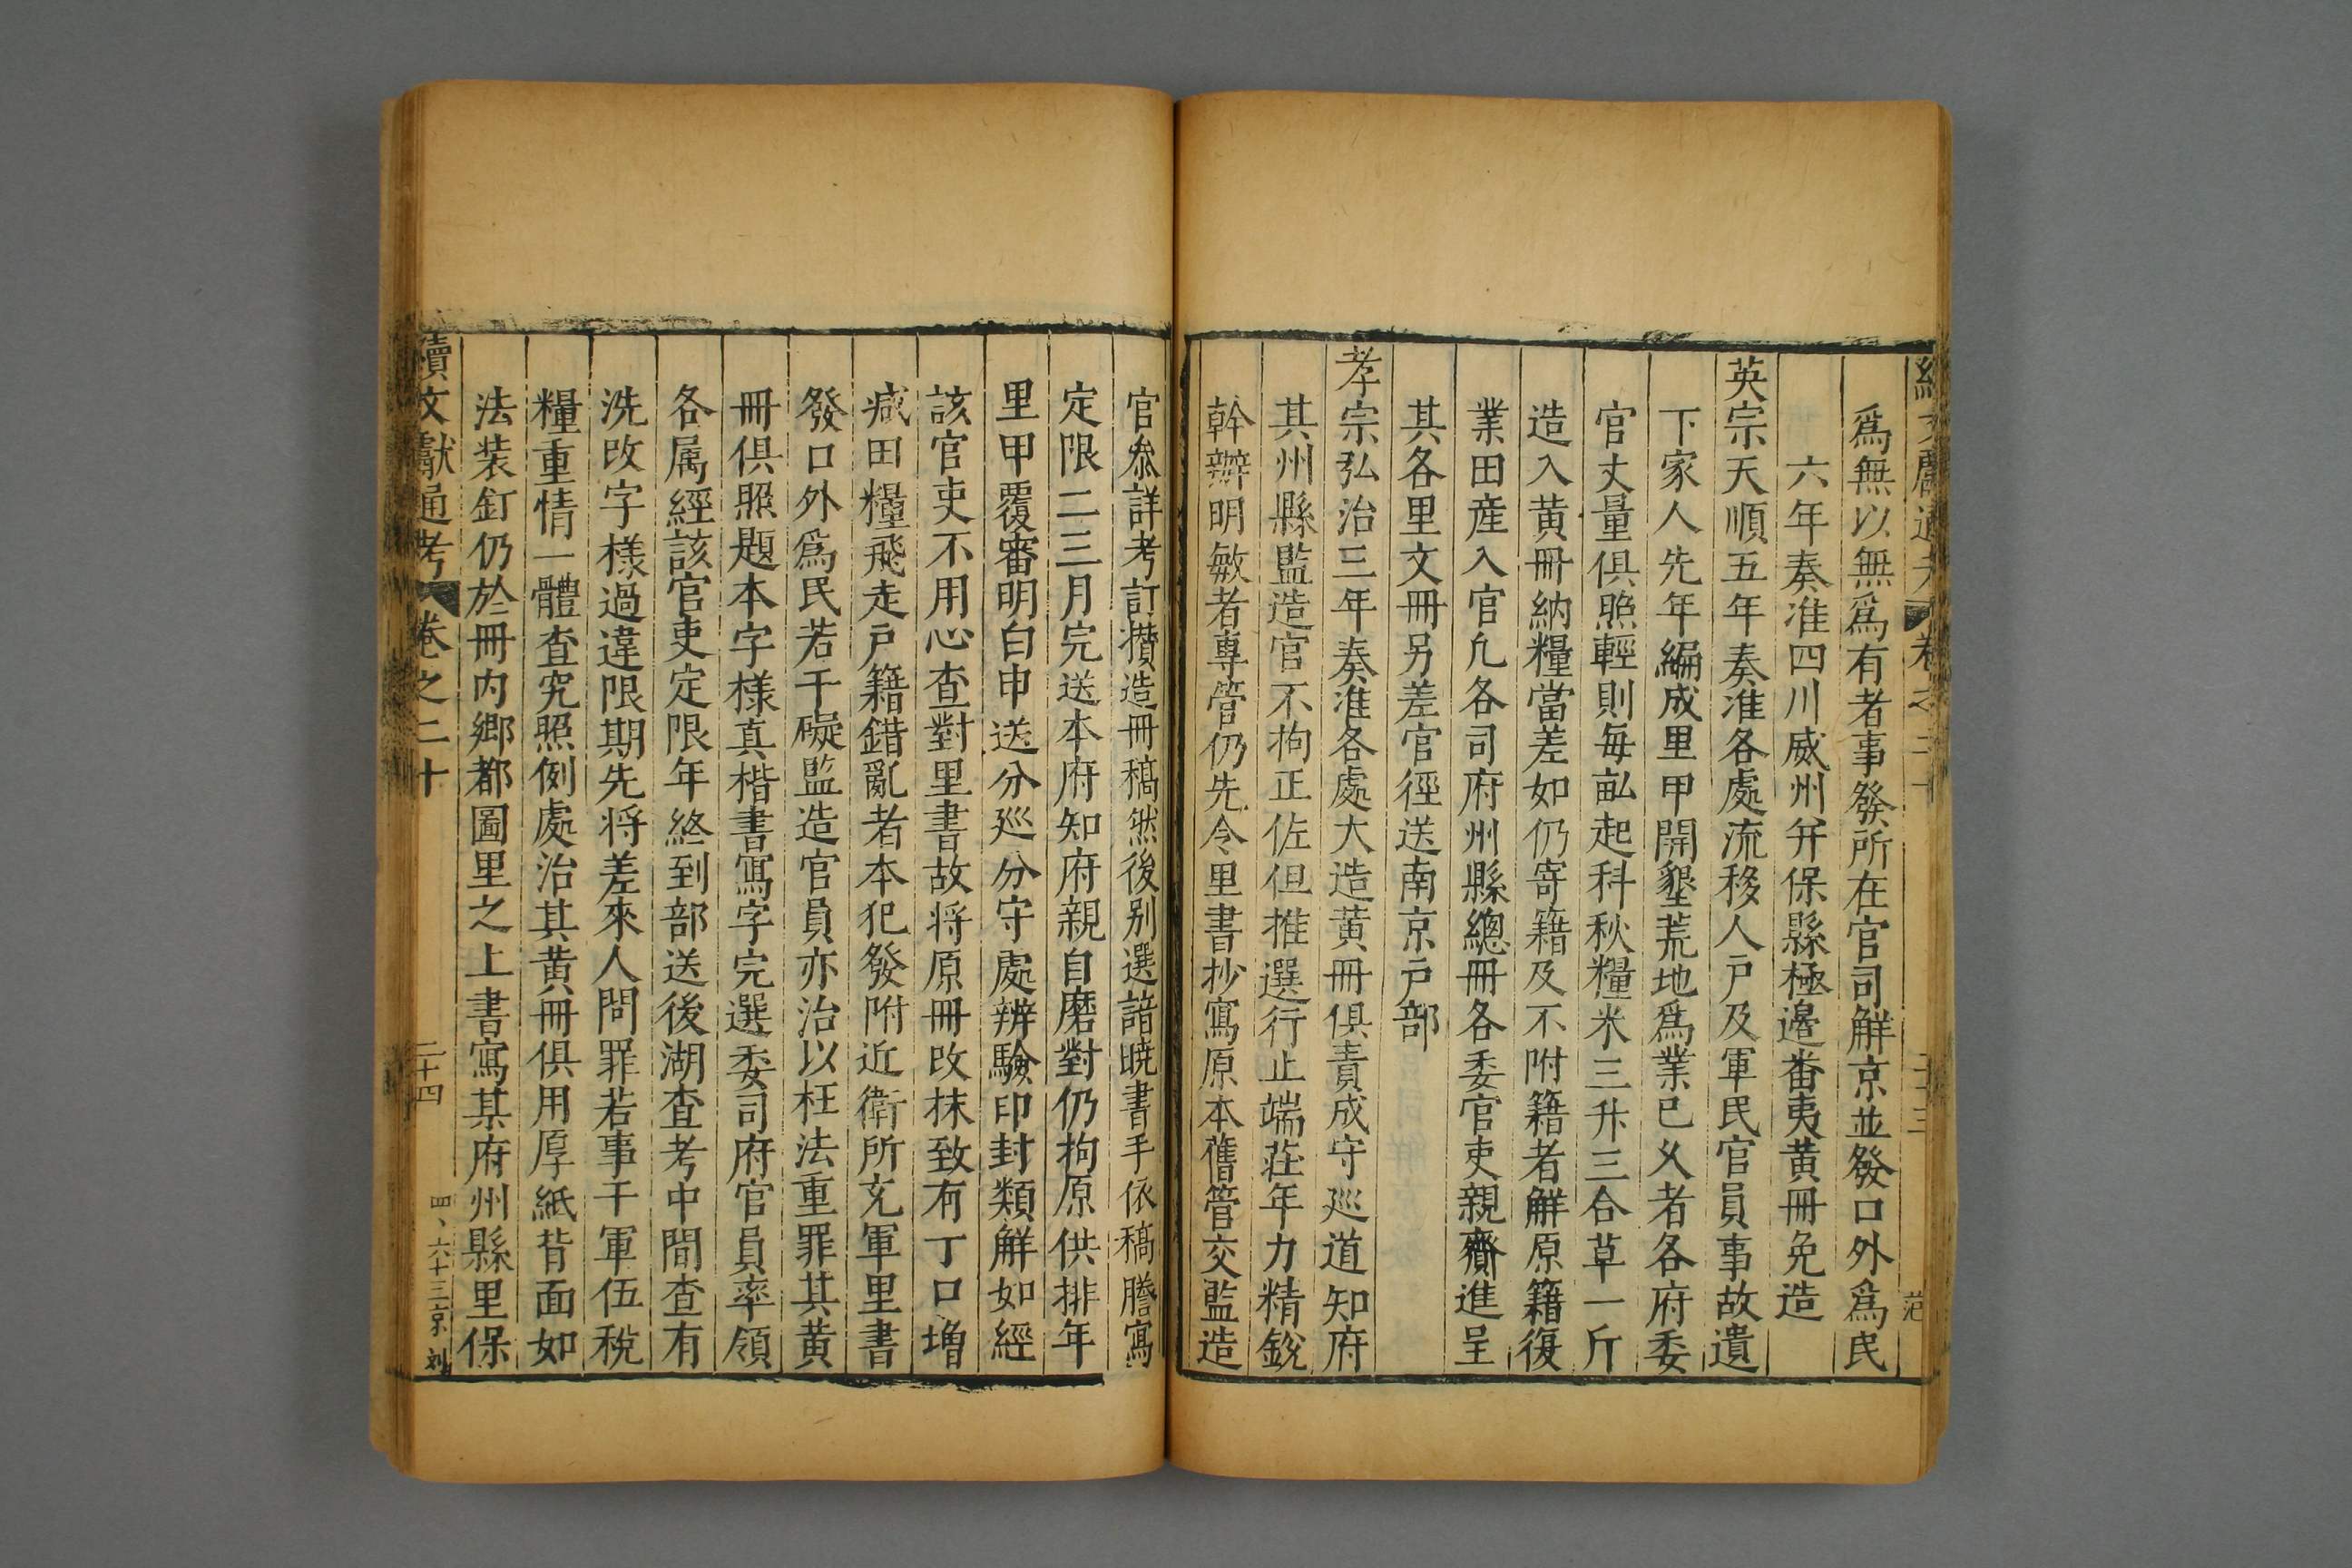 續文獻通考 卷之二十 二十三 范
爲無以無爲有者事發所在官司解京並發口外爲民
六年奏准四川威州并保縣極邊番夷黃冊免造
英宗天順五年奏准各處流移人戶及軍民官員事故遺
下家人先年編成里甲開墾荒地爲業已久者各府委
官丈量俱照輕則每畝起科秋糧米三升三合草一斤
造入黃冊納糧當差如仍寄籍及不附籍者解原籍復
業田産入官凢各司府州縣總冊各委官吏親齎進呈
其各里文冊另差官徑送南京戶部
孝宗弘治三年奏准各處大造黃冊俱責成守廵道知府
其州縣監造官不拘正佐但推選行止端莊年力精銳
幹辦明敏者專管仍先令里書抄寫原本舊管交監造
官叅詳考訂攅造冊稿然後别選諳曉書手依稿謄寫
定限二三月完送本府知府親自磨對仍拘原供排年
里甲覆審明白申送分廵分守處辨驗印封類解如經
該官吏不用心查對里書故将原冊改抹致有丁口增
减田糧飛走戶籍錯亂者本犯發附近衛所充軍里書
發口外爲民若干礙監造官員亦治以枉法重罪其黃
冊俱照題本字樣真楷書寫字完選委司府官員率領
各属經該官吏定限年終到部送後湖查考中間查有
洗改字様過違限期先将差來人問罪若事干軍伍稅
糧重情一體查究照例處治其黃冊俱用厚紙背面如
法装釘仍於冊内鄉都圖里之上書寫某府州縣里保
續文獻通考 卷之二十 二十四 四、六十三京 刘